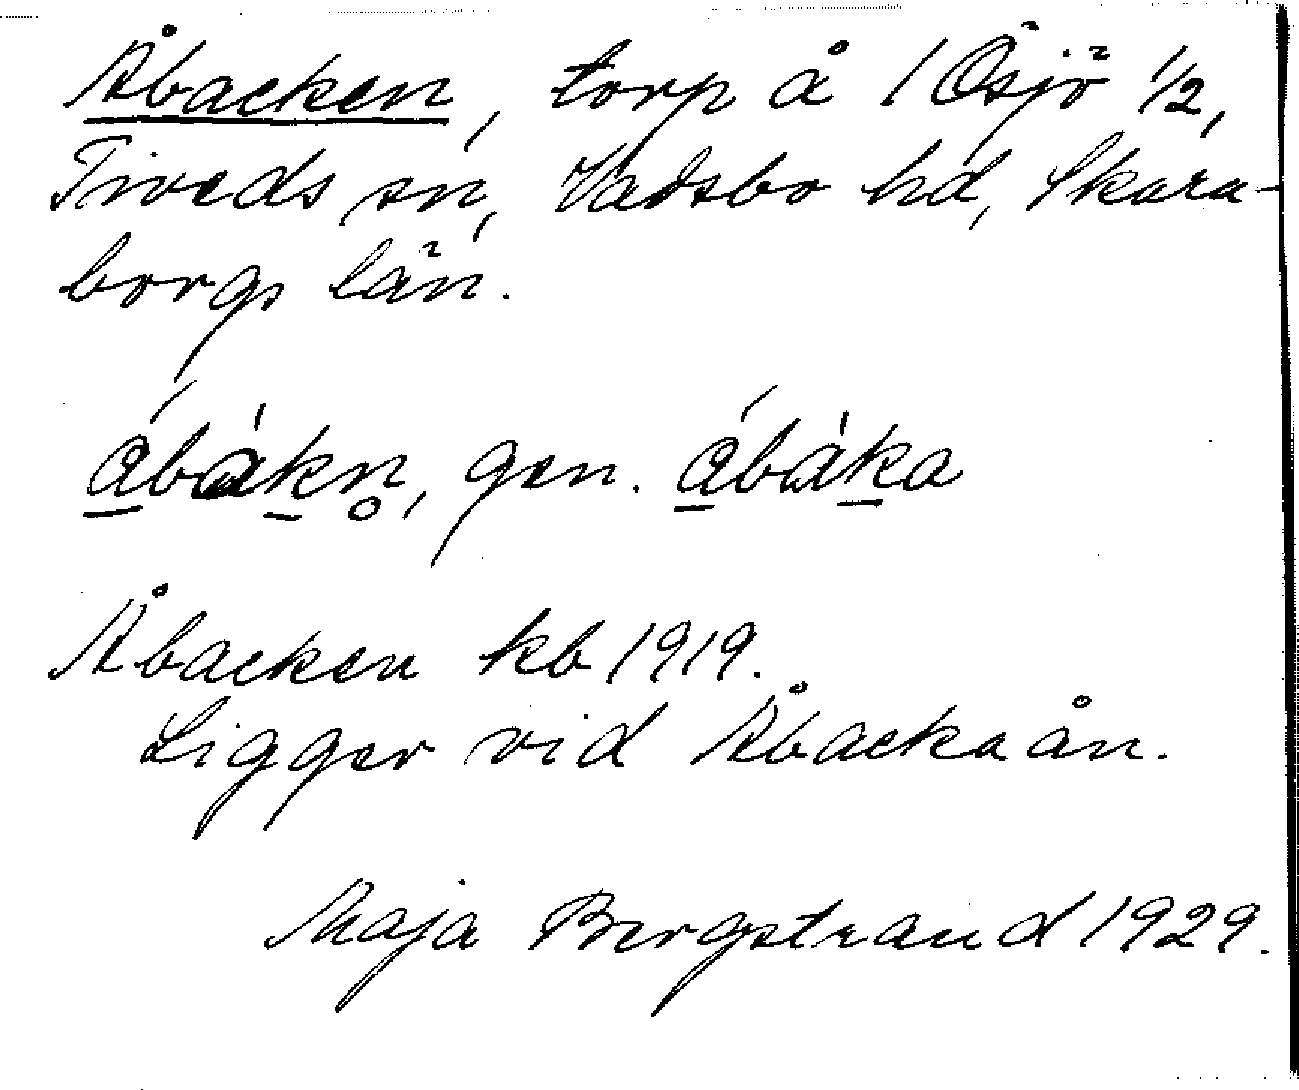 Åbacken, torp å 1 Ösjö 1/2,
Tiveds sn, Vadsbo hd, Skara-
borgs län.
åbàkn̥, gen. åbàka
Åbacken kb 1919.
Ligger vid Åbackaån.
Maja Bergstrand 1929.